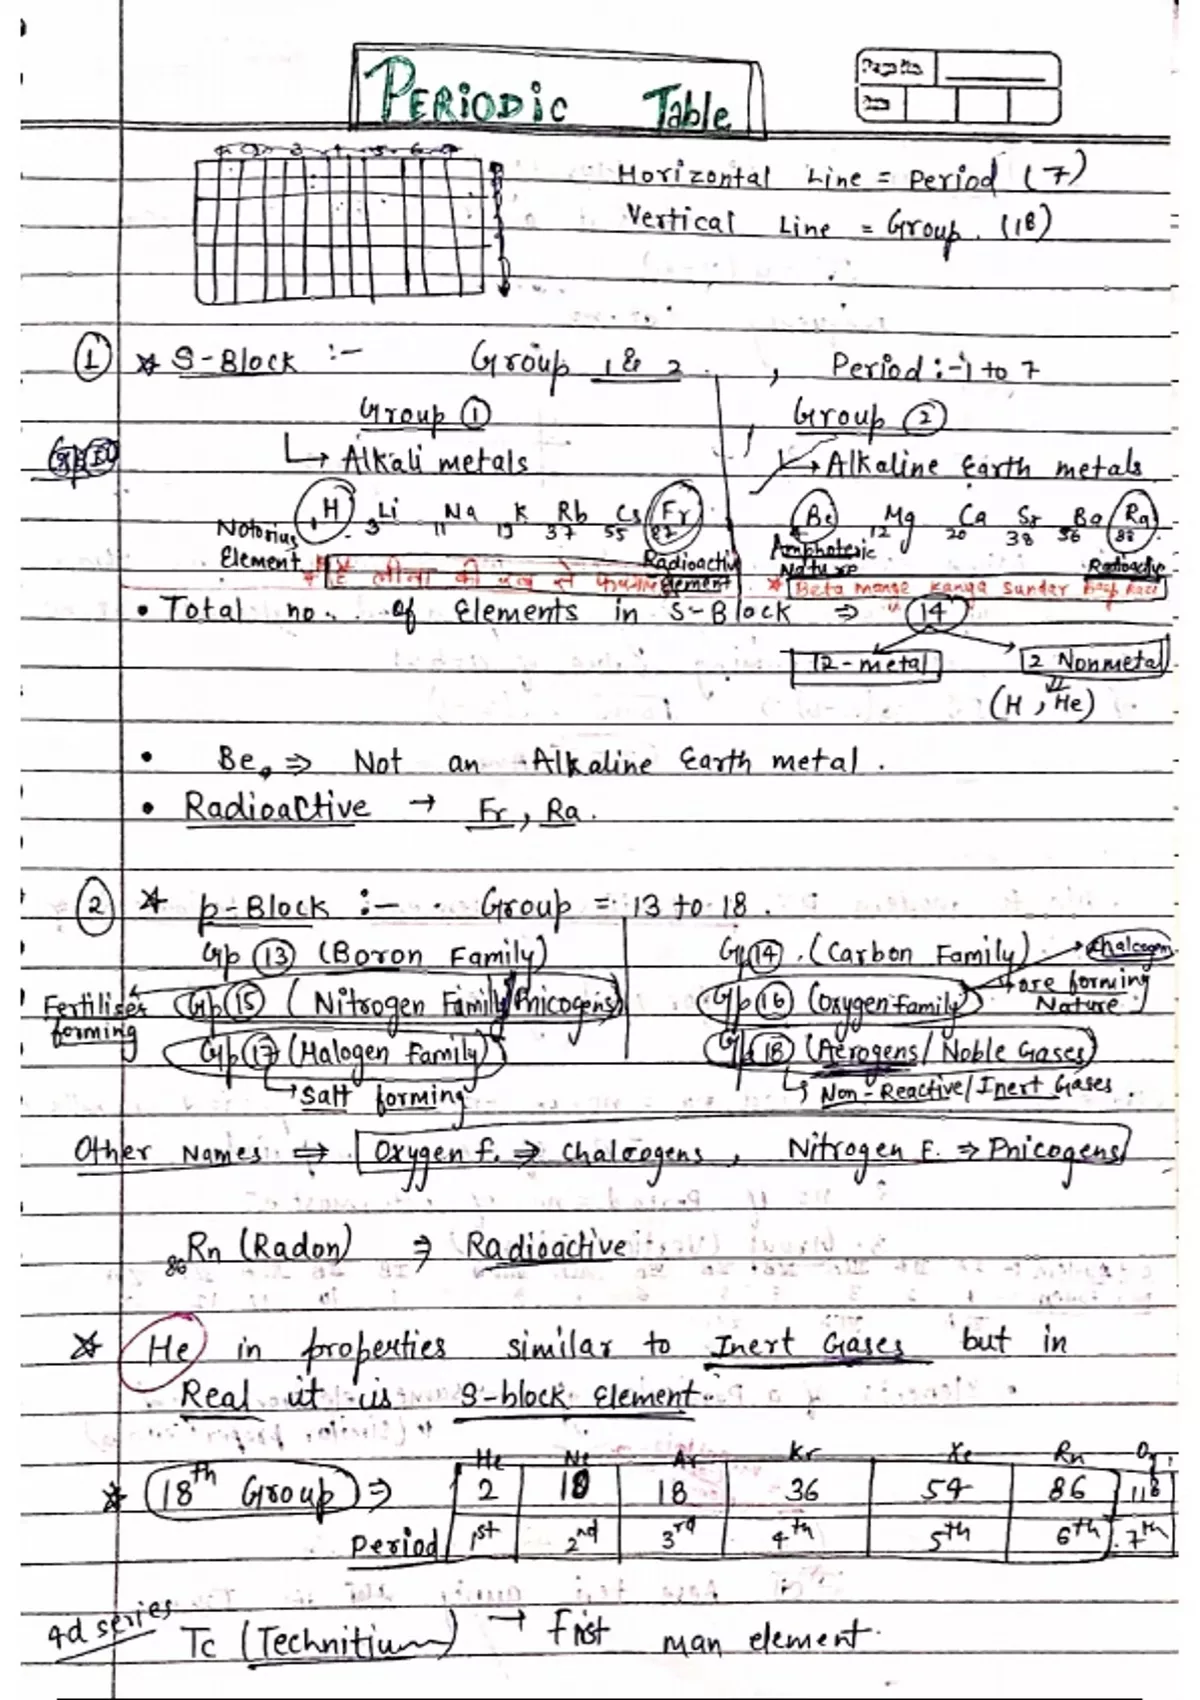 PERIODIC Table
Horizontal Line = Period (7)
Vertical Line = Group. (18)
① * S-Block :- Group 1 & 2 , Period :- 1 to 7
Group ① Group ②
↳ Alkali metals ↳ Alkaline Earth metals
1H 3Li 11Na 19K 37Rb 55Cs 87Fr 4Be 12Mg 20Ca 38Sr 56Ba 88Ra
Notorius Element Radioactive Element Amphoteric Nature Radioactive
* Beta mange kanya sundar Baap
• Total no. of Elements in S-Block ⇒ 14
12-metal 2 Nonmetal
(H, He)
• Be ⇒ Not an Alkaline Earth metal.
• Radioactive → Fr, Ra.
② * p-Block :- Group = 13 to 18.
Gp ⑬ (Boron Family) Gp ⑭ (Carbon Family) → Chalcogen
Fertilisers forming Gp ⑮ (Nitrogen Family/Pnicogens) Gp ⑯ (Oxygen Family) ore forming Nature
Gp ⑰ (Halogen Family) Gp ⑱ (Aerogens/ Noble Gases)
↳ Salt forming ↳ Non-Reactive/Inert Gases.
Other Names ⇒ Oxygen F. ⇒ Chalcogens, Nitrogen F. ⇒ Pnicogens
86Rn (Radon) ⇒ Radioactive
* He in properties similar to Inert Gases but in
Real it is S-block Element.
He Ne Ar Kr Xe Rn
* 18th Group ⇒ 2 18 36 54 86 118
Period 1st 2nd 3rd 4th 5th 6th 7th
4d series Tc (Technitium) → First man element.